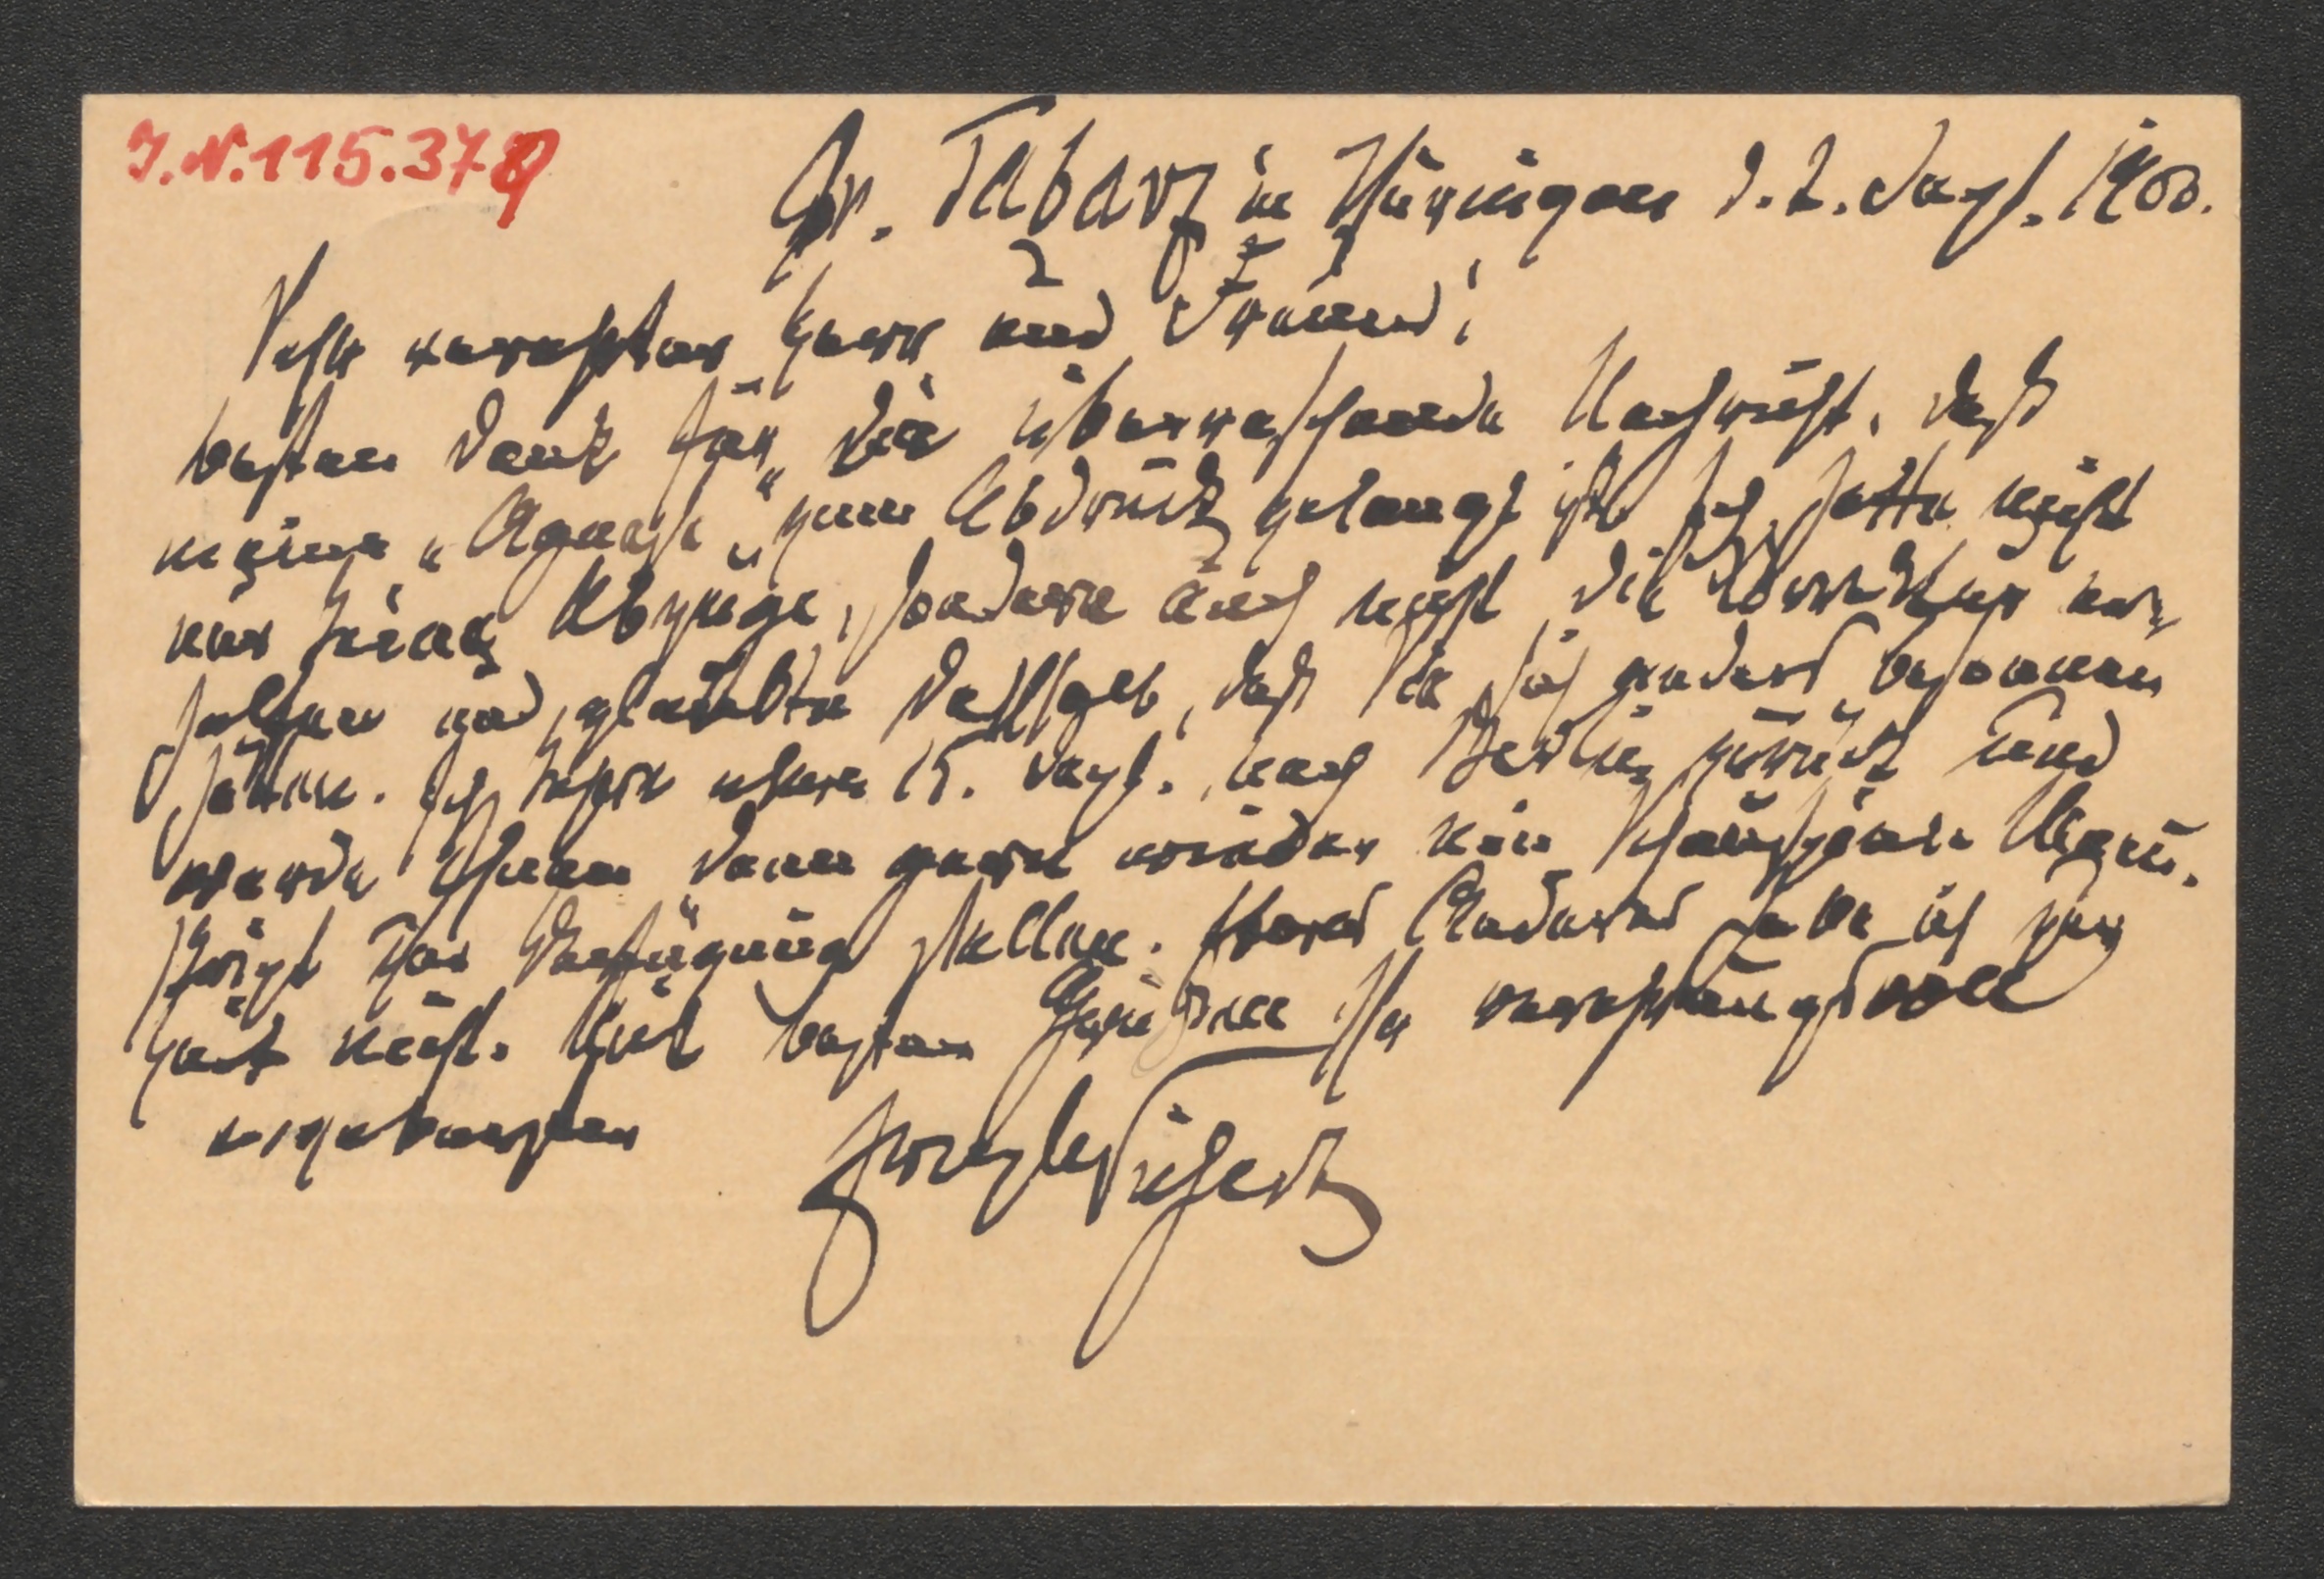 I.N. 115.379
Gr. Tabarz in Thüringen d. 2. Sept. 1900.
Sehr verehrter Herr und Freund!
besten Dank für die überraschende Nachricht, daß
meine „Agnese“ zum Abdruck gelangt ist. Ich hatte nicht
nur keine Abzüge, sondern auch nicht die Korrektur er-
halten und glaubte deßhalb, daß Sie sich anders besonnen
hätten. Ich kehre etwa 15. Sept. nach Berlin zurück und
werde Ihnen dann gern wieder ein Manu-
skript zur Verfügung stellen. Etwas Anderes habe ich zur
Zeit nicht. Mit besten Grüßen Ihr verehrungsvoll
ergebenster
Ernst Wichert